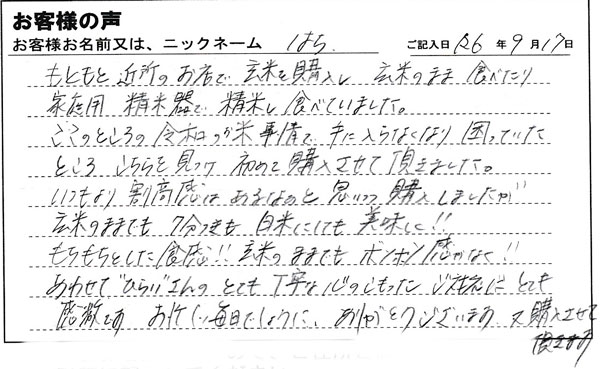 お客様の声
お客様お名前又は、ニックネーム はら ご記入日 R6年 9月 17日
もともと 近所の お店で 玄米を購入し 玄米のまま 食べたり
家庭用 精米器で 精米し 食べていました。
ここのところの 令和の米事情で 手に入らなくなり 困っていた
ところ こちらを 見つけ 初めて 購入させて 頂きました。
いつもより 割高感は あるなぁと 思いつつ 購入しましたが
玄米のままでも 7分つきも 白米にしても 美味しく!!
もちもちとした 食感!! 玄米のままでも ボソボソ感がなく!!
あわせて ひらいさんの とても 丁寧な 心のこもった ご対応に とても
感謝です お忙しい毎日でしょうに、ありがとうございます 又 購入させて
頂きます